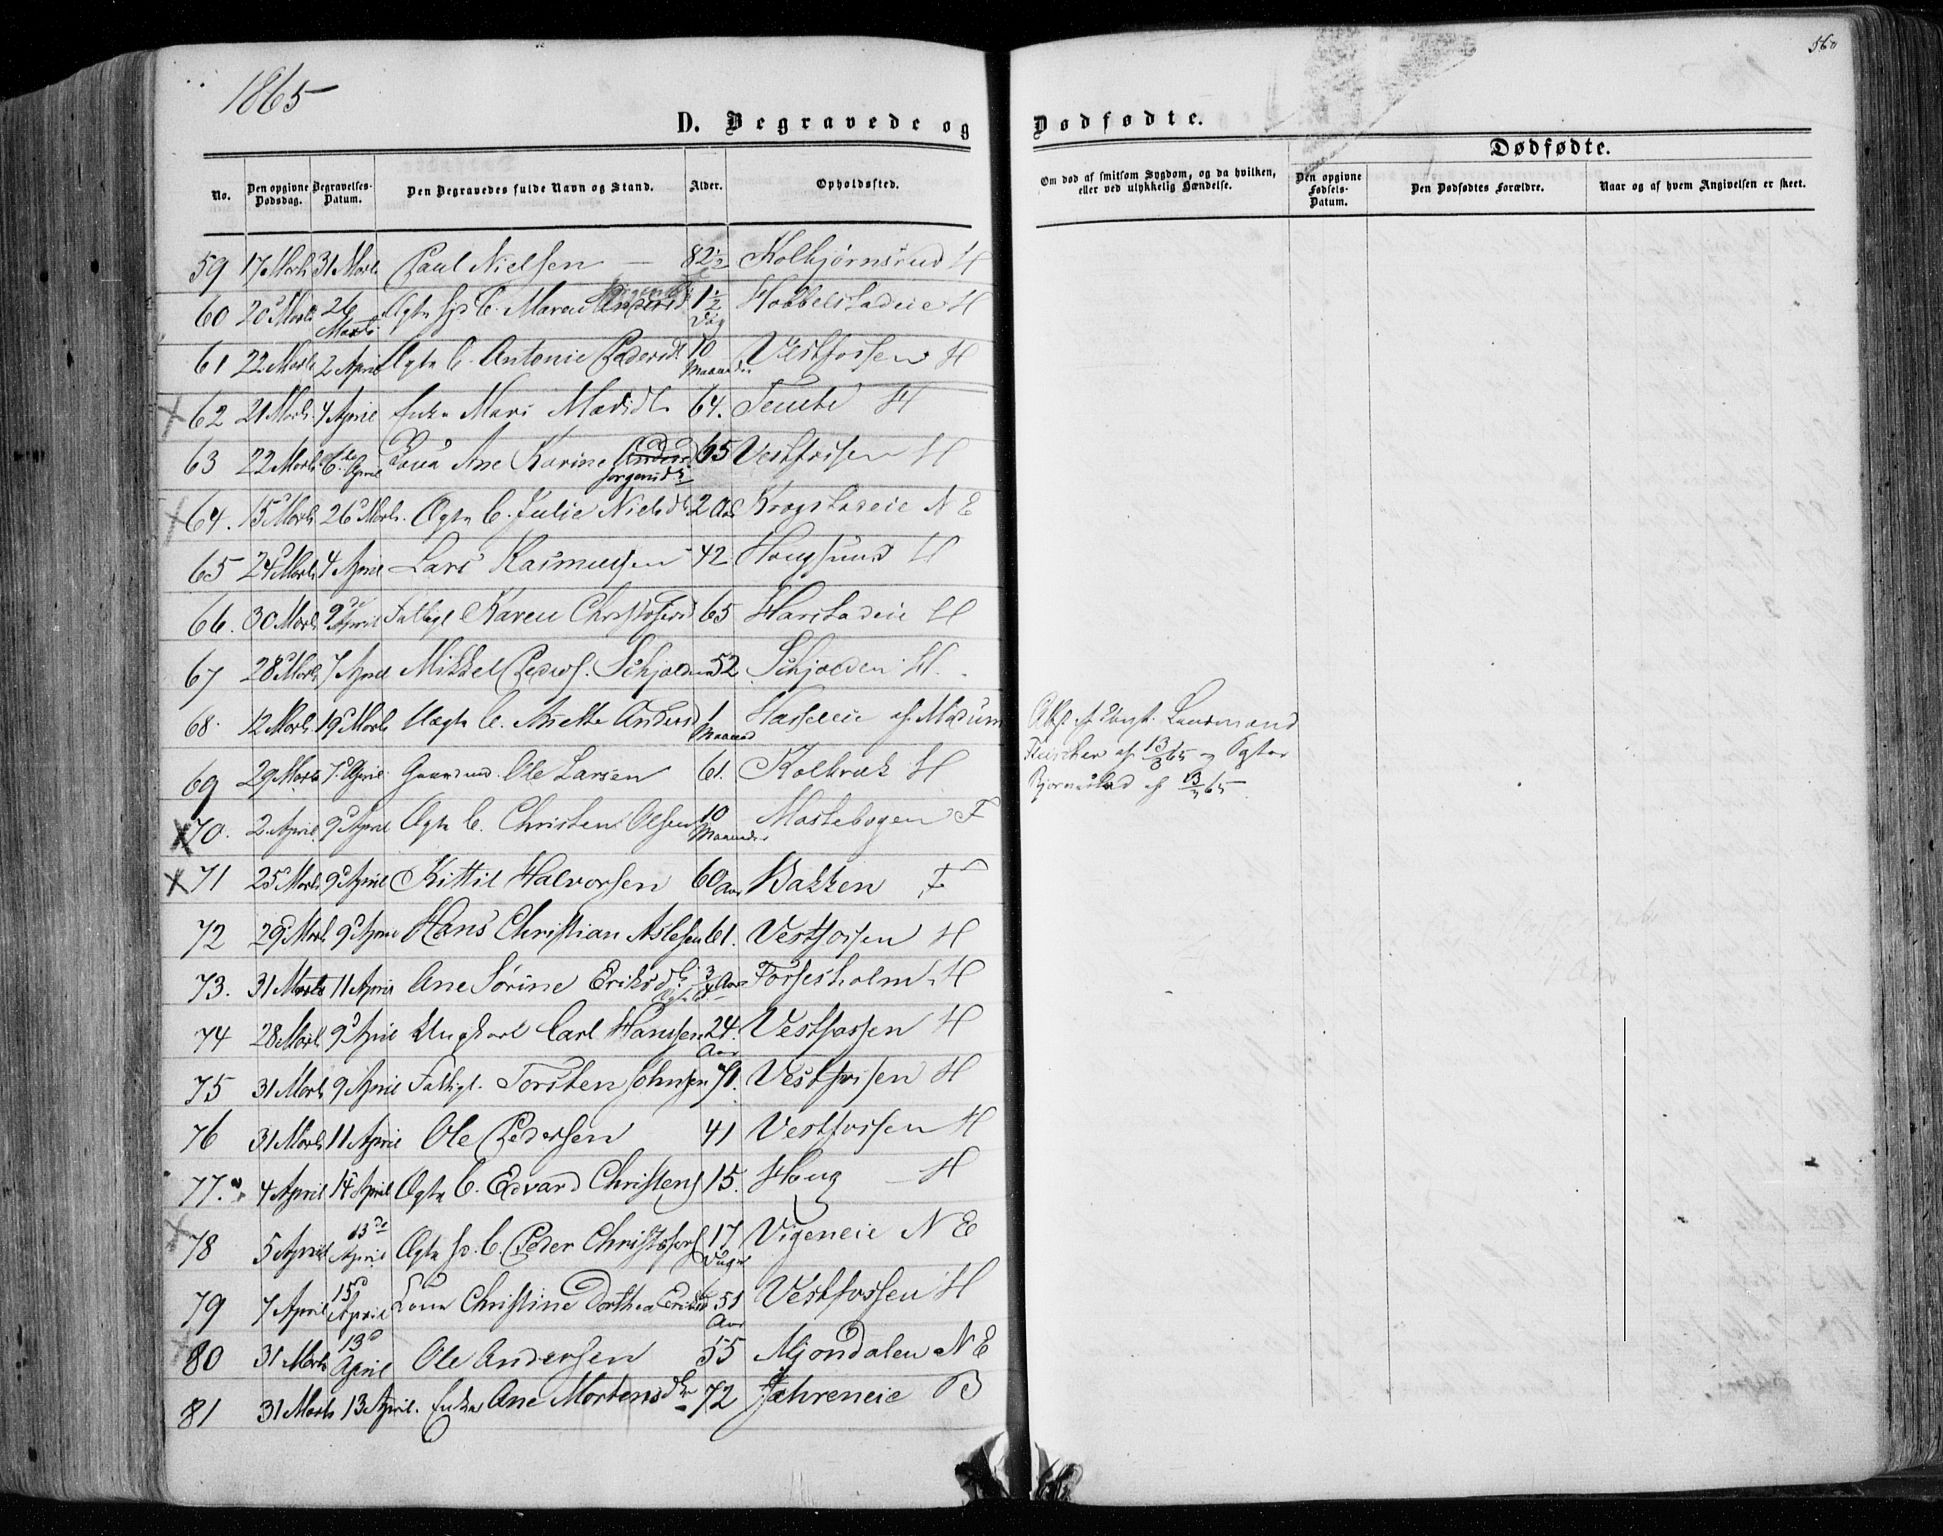 1865
560
D. Begravede og Dødfødte.
Dødfødte.
No. Den opgivne Dødsdag. Begravelses-Datum. Den Begravedes fulde Navn og Stand. Alder. Opholdssted. Om død af smitsom Sygdom, og da hvilken, eller ved ulykkelig Hændelse. Den opgivne Fødsels-Datum. Den Dødfødtes Forældre. Naar og af hvem Angivelsen er skeet.
59 17 Marts 31 Marts Paul Nielsen — 82 1/2 Kolbjørnsrud H
60 20 Marts 26 Marts Ægte Sp. B. Maren 1 1/2 Dag Hobbelstadeie H
61 22 Marts 2 April Ægte B. Antonie Pedersd. 10 Maaneder Vestfossen H
62 21 Marts 4 April Enke Mari Madsdtr 64. Temte H
63 22 Marts 6te April Kona Ane Karine Anders Jorgensdtr 65 Vestfossen H
64. 15 Marts 26 Marts. Ægte B. Julie Nielsdtr 2 Aar Krogstadeie N E
65 24 Marts 4 April Lars Rasmussen 42 Hougsund H
66. 30 Marts 9de April Fattigl Karen Christofersd 65 Harstadeie H
67 28 Marts 7 April Mikkel Peders. Schjolden 52 Schjolden H.
68. 12 Marts 19 Marts Uægte B. Anette Andersd 1 Maaned Hasseleie af Modum
Attst af Const. Lensmand
Fleischer af 13/3 65 og Dgtor
Bjornstad af 13/3 65
69 29 Marts 7 April. Gaardmd. Ole Larsen 61. Kolbræk H
70. 2 April 9 April Ægte B. Christen Olsen 10 Maaneder Mastebogen F
71 25 Marts 9 April Kittil Halvorsen 60 Aar Bakken F
72 29 Marts 9 April Hans Christian Aslesen 61. Vestfossen H
73. 31 Marts 11 April Ane Sørine Eriksdtr. Ægte B 3/4 Aar Fossesholm H
74 28 Marts 9 April Ungkarl Carl Hanssen 24. Aar Vestfossen H
75 31 Marts 9 April Fattigl. Torsten Johnsen 71. Vestfossen H
76 31 Marts 11 April Ole Pedersen 41 Vestfossen H
77. 4 April 14 April Ægte B. Edvard Christens 15. Houg — H
78 5 April 13de April Ægte Sp. B. Peder Christofers 17 Dage Vigeneie N E
79 7 April 15 April Kona Christine Dorthea Eriksd 51 Aar Vestfossen H
80 31 Marts 13 April Ole Andersen 55 Mjondalen N E
81 31 Marts 13 April. Enke Ane Mortensdtr 72 Jahreneie B